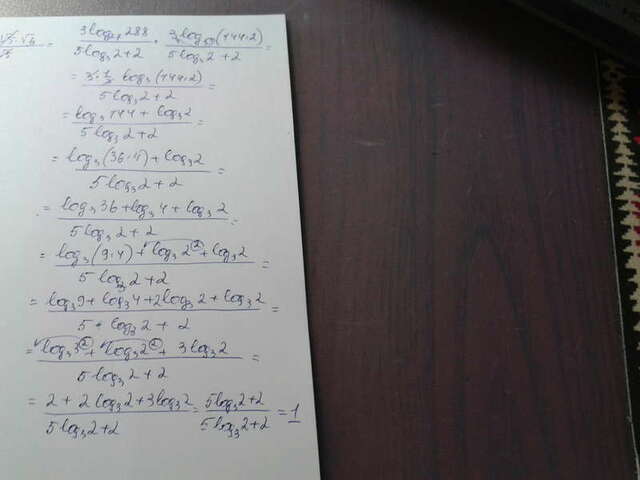 3log₂₇288 / 5log₃2+2 = 3log₂₇(144·2) / 5log₃2+2 =
= 3·⅓ log₃(144·2) / 5log₃2+2 =
= log₃144 + log₃2 / 5log₃2+2 =
= log₃(36·4) + log₃2 / 5log₃2+2 =
= log₃36 + log₃4 + log₃2 / 5log₃2+2 =
= log₃(9·4) + log₃2² + log₃2 / 5log₃2+2 =
= log₃9 + log₃4 + 2log₃2 + log₃2 / 5·log₃2+2 =
= log₃3² + log₃2² + 3log₃2 / 5log₃2+2 =
= 2 + 2log₃2 + 3log₃2 / 5log₃2+2 = 5log₃2+2 / 5log₃2+2 = 1